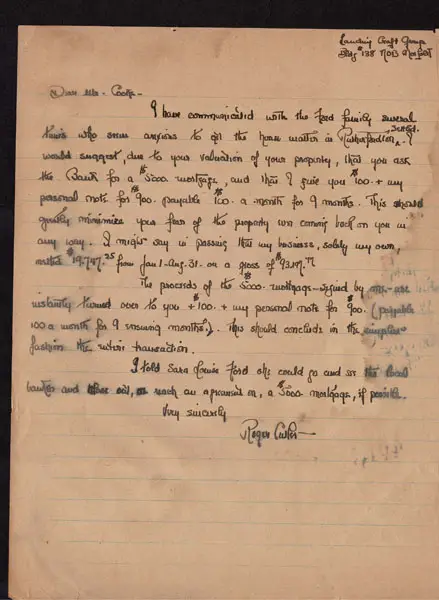 Landing Craft Group
Bldg #138 NOB Norfolk
Dear Mr. Cooke -
I have communicated with the Ford family several
times who seem anxious to get the house matter in Rutherfordton settled. I
would suggest, due to your valuation of your property, that you ask
the Bank for a $5000 mortgage, and that I give you $100. + my
personal note for $900. payable $100. a month for 9 months. This should
greatly minimize your fear of the property ever coming back on you in
any way. I might say in passing that my business, solely my own,
from Jan 1 - Aug. 31. on a gross of
The proceeds of the $5000 mortgage - signed by me - are
instantly turned over to you + $100 + my personal note for $900 (payable
100 a month for 9 ensuing months). This should conclude in the simplest
fashion the entire transaction.
I told Sara Louise Ford she could go and see the local
banker and
reach an agreement on, a $5000 mortgage, if possible.
Very sincerely
Roger